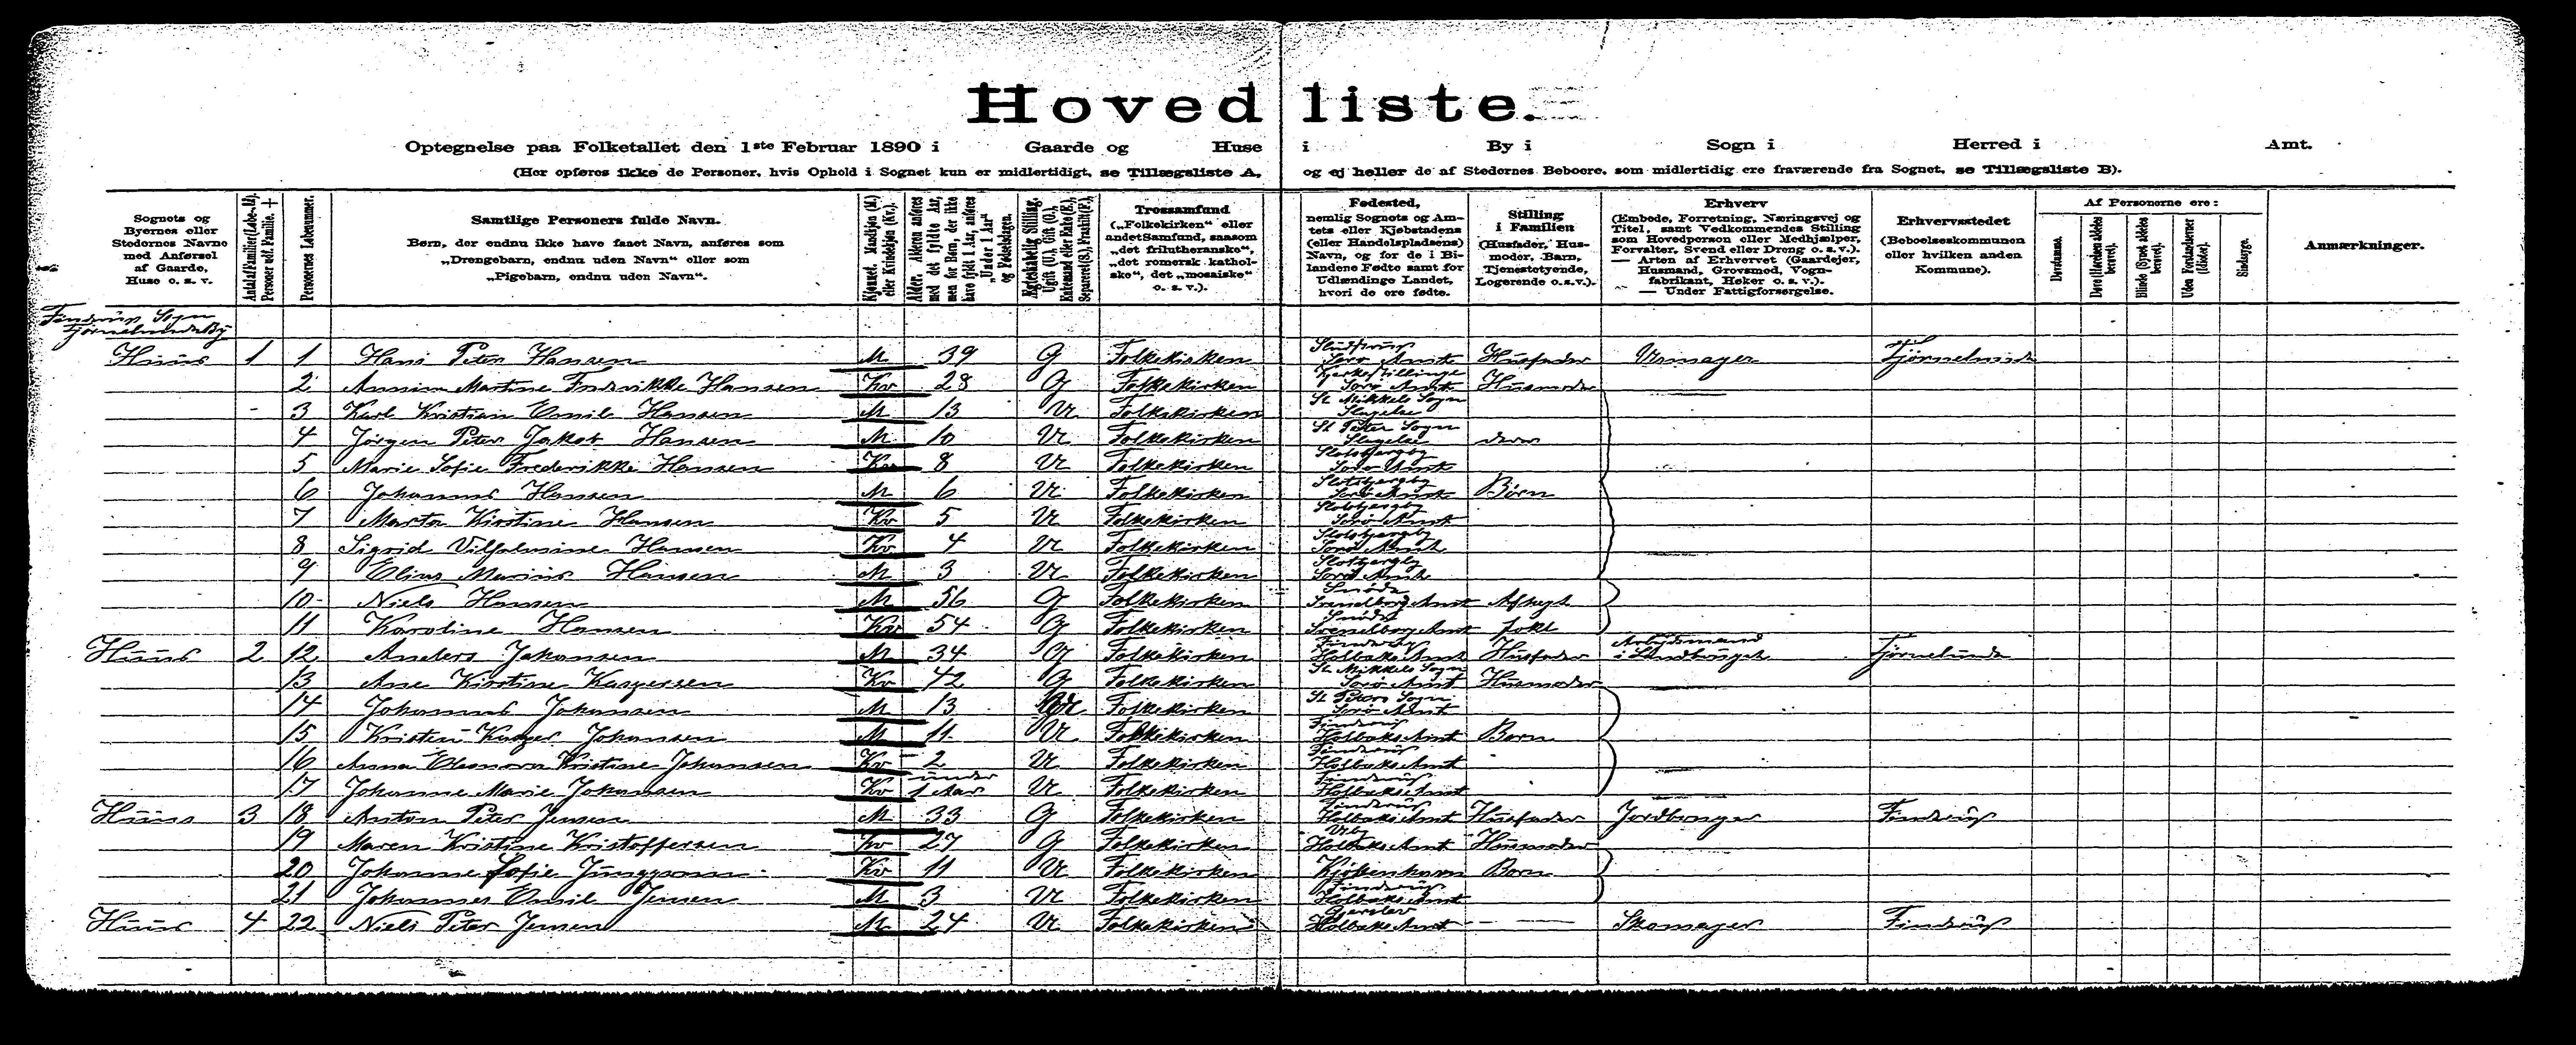 Hovedliste.
Optegnelse paa Folketallet den 1ste Februar 1890 i Gaarde og Huse i By i Sogn i Herred i Amt.
(Her opføres ikke de Personer, hvis Ophold i Sognet kun er midlertidigt, se Tillægsliste A, og ej heller de af Stedernes Beboere, som midlertidig ere fraværende fra Sognet, se Tillægsliste B).
Sognets og Byernes eller Stedernes Navne med Anførsel af Gaarde, Huse o. s. v.
Antal Familier (Løbe-Nr.). Personer udf. Familie. +
Personernes Løbenummer.
Samtlige Personers fulde Navn.
Børn, der endnu ikke have faaet Navn, anføres som „Drengebarn, endnu uden Navn“ eller som „Pigebarn, endnu uden Navn“.
Kjønnet. Mandkjøn (M.) eller Kvindekjøn (Kv.).
Alder. Alderen anføres med det fyldte Aar, men for Børn, der ikke have fyldt 1 Aar, anføres „Under 1 Aar“ og Fødselsdagen.
Ægteskabelig Stilling. Ugift (U.), Gift (G.), Enkemand eller Enke (E.), Separeret (S.), Fraskilt (F.).
Trossamfund („Folkekirken“ eller andet Samfund, saasom „det frilutheranske“, „det romersk katholske“, det „mosaiske“ o. s. v.).
Fødested, nemlig Sognets og Amtets eller Kjøbstadens (eller Handelspladsens) Navn, og for de i Bilandene Fødte samt for Udlændinge Landet, hvori de ere fødte.
Stilling i Familien (Husfader, Husmoder, Barn, Tjenestetyende, Logerende o.s.v.).
Erhverv (Embede, Forretning, Næringsvej og Titel, samt Vedkommendes Stilling som Hovedperson eller Medhjælper, Forvalter, Svend eller Dreng o. s. v.). — Arten af Erhvervet (Gaardejer, Husmand, Grovsmed, Vognfabrikant, Høker o. s. v.). — Under Fattigforsørgelse.
Erhvervsstedet (Beboelseskommunen eller hvilken anden Kommune).
Af Personerne ere:
Døvstumme.
Døve (Hørelsen aldeles berøvet).
Blinde (Synet aldeles berøvet).
Uden Forstandsevner (Idioter).
Sindssyge.
Anmærkninger.
Finderup Sogn
Tjørnelunde By
Huus 1 1 Hans Peter Hansen M 39 G Folkekirken Sorø Amt Husfader Urmager Tjørnelunde
2 Martine Fredrikke Hansen Kv 28 G Folkekirken Kjerkestillinge Sorø Amt Husmoder
3 Karl Kristian Emil Hansen M 13 U Folkekirken St Mikkels Sogn Slagelse
4 Jörgen Peter Jakob Hansen M 10 U Folkekirken St Peter Sogn Slagelse
5 Marie Sofie Frederikke Hansen Kv 8 U Folkekirken Slotsbjergby Sorø Amt
6 Johannes Hansen M 6 U Folkekirken Slotsbjergby Sorø Amt Börn
7 Marta Kirstine Hansen Kv 5 U Folkekirken Slotsbjergby Sorø Amt
8 Sigrid Vilhelmine Hansen Kv 4 U Folkekirken Slotsbjergby Sorø Amt
9 Elius Marius Hansen M 3 U Folkekirken Slotsbjergby Sorø Amt
10 Niels Hansen M 56 G Folkekirken Snöde Svendborg Amt Aftægts
11 Karoline Hansen Kv 54 G Folkekirken Snöde Svendborg Amt folk
Huus 2 12 Anders Johansen M 34 G Folkekirken Finderup Holbæks Amt Husfader Arbejdsmand i Landbruget Tjørnelunde
13 Ane Kirstine Kaspersen Kv 42 G Folkekirken St Mikkels Sogn Sorø Amt Husmoder
14 Johannes Johansen M 13 U Folkekirken St Peters Sogn Sorø Amt
15 Kristen Kasper Johansen M 11 U Folkekirken Finderup Holbæks Amt Børn
16 Anna Eleonora Kristine Johansen Kv 2 U Folkekirken Finderup Holbæks Amt
17 Johanne Marie Johansen Kv under 1 Aar U Folkekirken Finderup Holbæks Amt
Huus 3 18 Anton Peter Jensen M 33 G Folkekirken Finderup Holbæks Amt Husfader Jordbruger Finderup
19 Maren Kristine Kristoffersen Kv 27 G Folkekirken Ubby Holbæks Amt Husmoder
20 Johanne Sofie Kv 11 U Folkekirken Kjöbenhavn Børn
21 Johannes Emil Jensen M 3 U Folkekirken Finderup Holbæks Amt
Huus 4 22 Niels Peter Jensen M 24 U Folkekirken Gjerslev Holbæks Amt — — Skomager Finderup